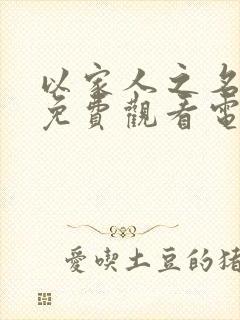 以家人之名
免費觀看電
愛喫土豆的豬